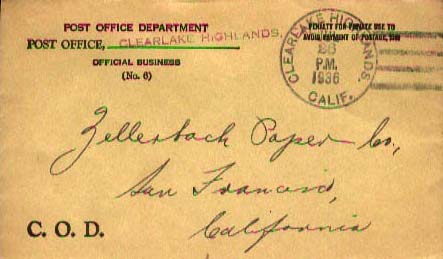 POST OFFICE DEPARTMENT
POST OFFICE, CLEARLAKE HIGHLANDS,
OFFICIAL BUSINESS
(No. 6)
PENALTY FOR PRIVATE USE TO
AVOID PAYMENT OF POSTAGE, $300
CLEARLAKE HIGHLANDS,
26
P.M.
1936
CALIF.
Zellerbach Paper Co.,
San Francisco,
California
C. O. D.